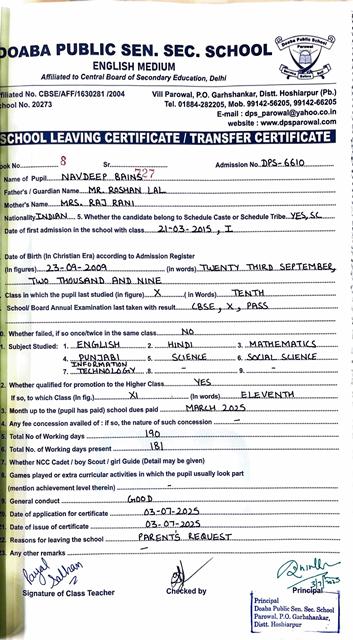 DOABA PUBLIC SEN. SEC. SCHOOL
ENGLISH MEDIUM
Affiliated to Central Board of Secondary Education, Delhi
Doaba Public School
Parowal
ffiliated No. CBSE/AFF/1630281 /2004
chool No. 20273
Vill Parowal, P.O. Garhshankar, Distt. Hoshiarpur (Pb.)
Tel. 01884-282205, Mob. 99142-56205, 99142-66205
E-mail : dps_parowal@yahoo.co.in
website : www.dpsparowal.com
SCHOOL LEAVING CERTIFICATE / TRANSFER CERTIFICATE
ook No. 8 Sr. 727 Admission No. DPS-6610
Name of Pupil NAVDEEP BAINS
Father's / Guardian Name MR. ROSHAN LAL
Mother's Name MRS. RAJ RANI
Nationality INDIAN 5. Whether the candidate belong to Schedule Caste or Schedule Tribe YES, SC
Date of first admission in the school with class 21-03-2015, I
Date of Birth (In Christian Era) according to Admission Register
(In figures) 23-09-2009 (In words) TWENTY THIRD SEPTEMBER,
TWO THOUSAND AND NINE
Class in which the pupil last studied (in figure) X ( in Words) TENTH
School/ Board Annual Examination last taken with result CBSE, X, PASS
0. Whether failed, if so once/twice in the same class. NO
1. Subject Studied: 1. ENGLISH 2. HINDI 3. MATHEMATICS
4. PUNJABI 5. SCIENCE 6. SOCIAL SCIENCE
7. INFORMATION TECHNOLOGY 8. - 9. -
2. Whether qualified for promotion to the Higher Class YES
If so, to which Class (In fig.) XI (In words) ELEVENTH
3. Month up to the (pupil has paid) school dues paid MARCH 2025
4. Any fee concession availed of : if so, the nature of such concession -
5. Total No of Working days 190
6. Total No. of Working days present 181
7. Whether NCC Cadet / boy Scout / girl Guide (Detail may be given)
8. Games played or extra curricular activities in which the pupil usually look part
(mention achievement level therein) -
9. General conduct GOOD
20. Date of application for certificate 03-07-2025
21. Date of issue of certificate 03-07-2025
22. Reasons for leaving the school PARENT'S REQUEST
23. Any other remarks -
3/7/2025
Signature of Class Teacher Checked by Principal
Principal
Doaba Public Sen. Sec. School
Parowal, P.O. Garhshankar,
Distt. Hoshiarpur